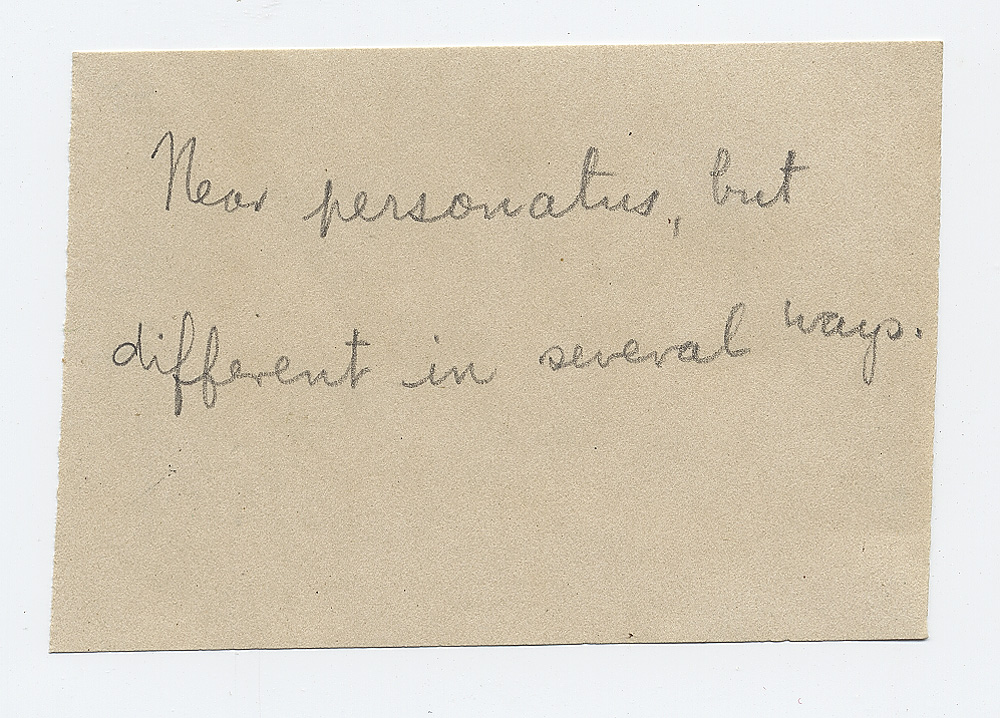 Near personatus, but
different in several ways.